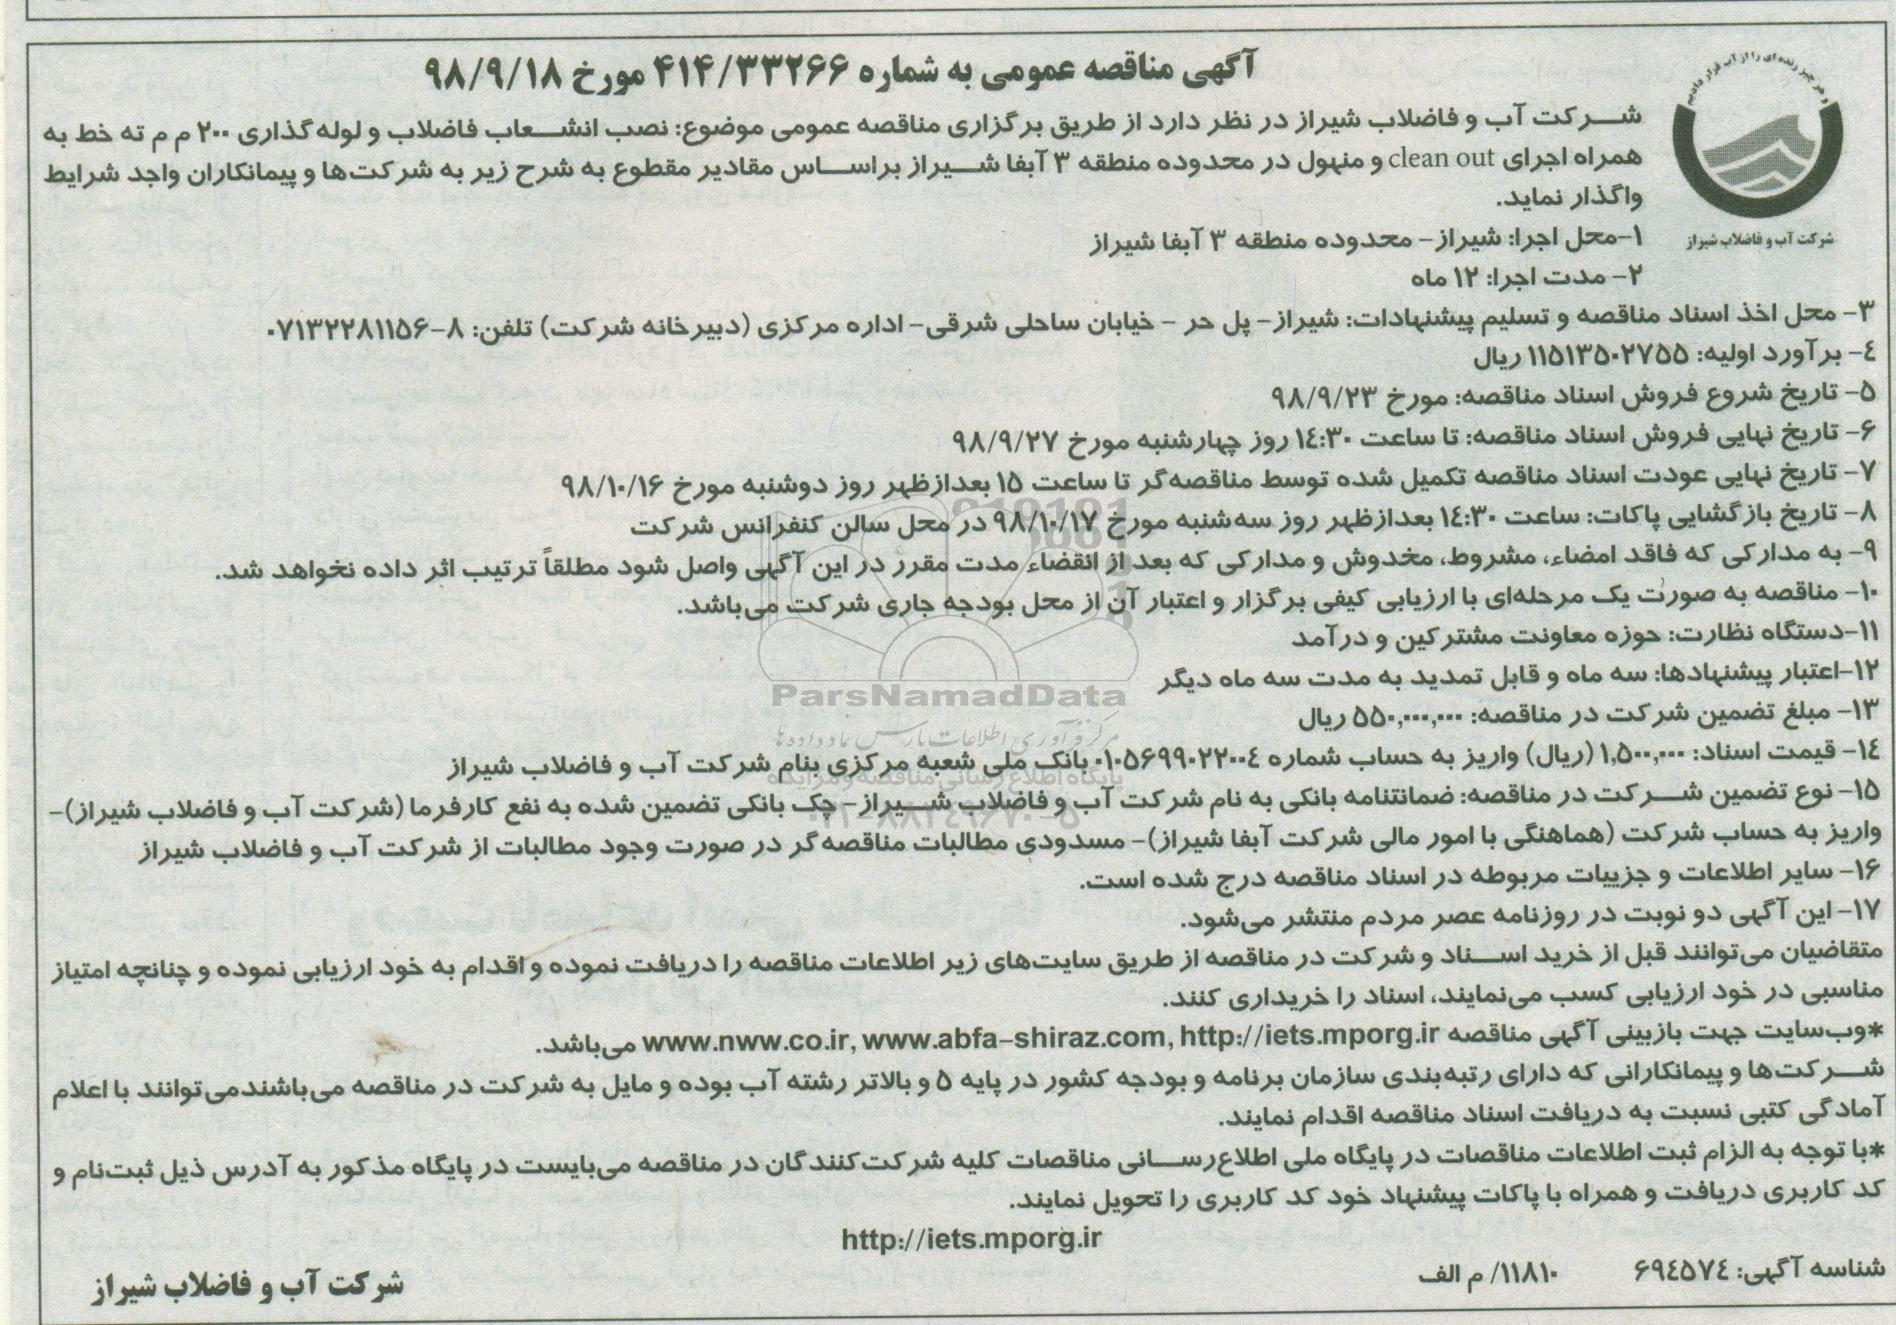 آگهی مناقصه عمومی به شماره ۴۱۴/۳۳۲۶۶ مورخ ۹۸/۹/۱۸
و هر چیز زنده ای را از آب قرار دادیم
شرکت آب و فاضلاب شیراز
شرکت آب و فاضلاب شیراز در نظر دارد از طریق برگزاری مناقصه عمومی موضوع: نصب انشعاب فاضلاب و لوله گذاری ۲۰۰ م م ته خط به
همراه اجرای clean out و منهول در محدوده منطقه ۳ آبفا شیراز براساس مقادیر مقطوع به شرح زیر به شرکت‌ها و پیمانکاران واجد شرایط
واگذار نماید.
۱-محل اجرا: شیراز- محدوده منطقه ۳ آبفا شیراز
۲- مدت اجرا: ۱۲ ماه
۳- محل اخذ اسناد مناقصه و تسلیم پیشنهادات: شیراز- پل حر - خیابان ساحلی شرقی- اداره مرکزی (دبیرخانه شرکت) تلفن: ۸-۰۷۱۳۲۲۸۱۱۵۶
۴- برآورد اولیه: ۱۱۵۱۳۵۰۲۷۵۵ ریال
۵- تاریخ شروع فروش اسناد مناقصه: مورخ ۹۸/۹/۲۳
۶- تاریخ نهایی فروش اسناد مناقصه: تا ساعت ۱۴:۳۰ روز چهارشنبه مورخ ۹۸/۹/۲۷
۷- تاریخ نهایی عودت اسناد مناقصه تکمیل شده توسط مناقصه‌گر تا ساعت ۱۵ بعدازظهر روز دوشنبه مورخ ۹۸/۱۰/۱۶
۸- تاریخ بازگشایی پاکات: ساعت ۱۴:۳۰ بعدازظهر روز سه‌شنبه مورخ ۹۸/۱۰/۱۷ در محل سالن کنفرانس شرکت
۹- به مدارکی که فاقد امضاء، مشروط، مخدوش و مدارکی که بعد از انقضاء مدت مقرر در این آگهی واصل شود مطلقاً ترتیب اثر داده نخواهد شد.
۱۰- مناقصه به صورت یک مرحله‌ای با ارزیابی کیفی برگزار و اعتبار آن از محل بودجه جاری شرکت می‌باشد.
۱۱-دستگاه نظارت: حوزه معاونت مشترکین و درآمد
۱۲-اعتبار پیشنهادها: سه ماه و قابل تمدید به مدت سه ماه دیگر
ParsNamadData
۱۳- مبلغ تضمین شرکت در مناقصه: ۵۵۰,۰۰۰,۰۰۰ ریال
مرکز فرآوری اطلاعات پارس نماد داده ها
۱۴- قیمت اسناد: ۱,۵۰۰,۰۰۰ (ریال) واریز به حساب شماره ۰۱۰۵۶۹۹۰۲۲۰۰۴ بانک ملی شعبه مرکزی بنام شرکت آب و فاضلاب شیراز
پایگاه اطلاع رسانی مناقصه و مزایده
۱۵- نوع تضمین شرکت در مناقصه: ضمانتنامه بانکی به نام شرکت آب و فاضلاب شیراز- چک بانکی تضمین شده به نفع کارفرما (شرکت آب و فاضلاب شیراز)-
واریز به حساب شرکت (هماهنگی با امور مالی شرکت آبفا شیراز)- مسدودی مطالبات مناقصه‌گر در صورت وجود مطالبات از شرکت آب و فاضلاب شیراز
۱۶- سایر اطلاعات و جزییات مربوطه در اسناد مناقصه درج شده است.
۱۷- این آگهی دو نوبت در روزنامه عصر مردم منتشر می‌شود.
متقاضیان می‌توانند قبل از خرید اسناد و شرکت در مناقصه از طریق سایت‌های زیر اطلاعات مناقصه را دریافت نموده و اقدام به خود ارزیابی نموده و چنانچه امتیاز
مناسبی در خود ارزیابی کسب می‌نمایند، اسناد را خریداری کنند.
*وب‌سایت جهت بازبینی آگهی مناقصه www.nww.co.ir, www.abfa-shiraz.com, http://iets.mporg.ir می‌باشد.
شرکت‌ها و پیمانکارانی که دارای رتبه‌بندی سازمان برنامه و بودجه کشور در پایه ۵ و بالاتر رشته آب بوده و مایل به شرکت در مناقصه می‌باشندمی‌توانند با اعلام
آمادگی کتبی نسبت به دریافت اسناد مناقصه اقدام نمایند.
*با توجه به الزام ثبت اطلاعات مناقصات در پایگاه ملی اطلاع‌رسانی مناقصات کلیه شرکت‌کنندگان در مناقصه می‌بایست در پایگاه مذکور به آدرس ذیل ثبت‌نام و
کد کاربری دریافت و همراه با پاکات پیشنهاد خود کد کاربری را تحویل نمایند.
http://iets.mporg.ir
شناسه آگهی: ۶۹۴۵۷۴ ۱۱۸۱۰/ م الف
شرکت آب و فاضلاب شیراز